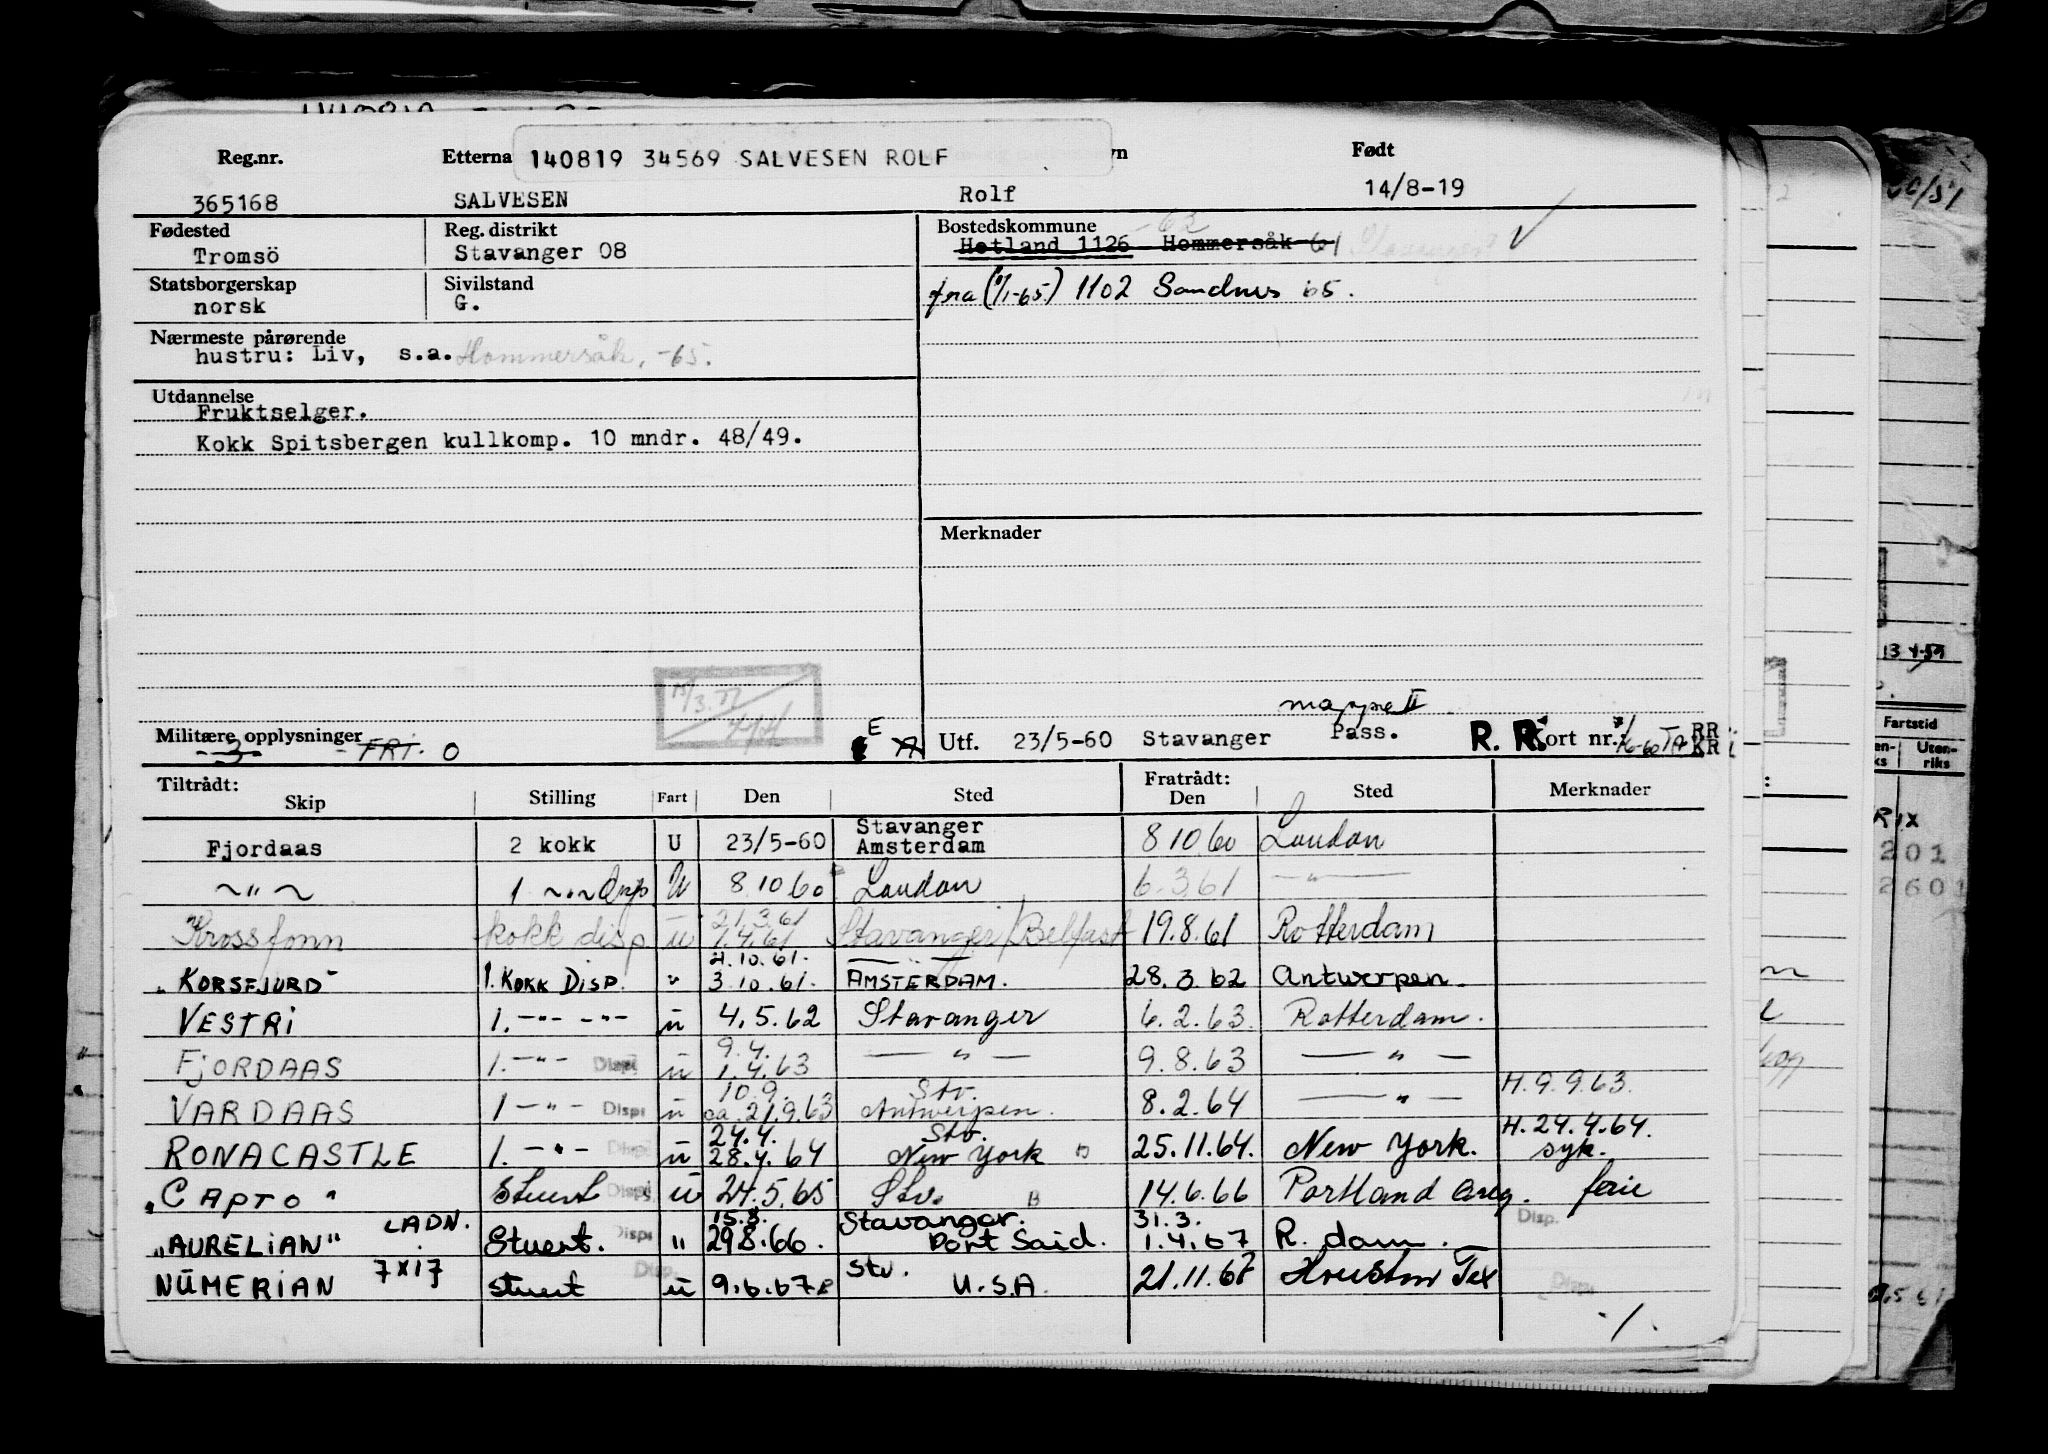 Reg.nr. Etterna 140819 34569 SALVESEN ROLF vn Født
365168 SALVESEN Rolf 14/8-19
Fødested Reg. distrikt Bostedskommune -62
Tromsö Stavanger 08 Hetland 1126 Hommersåk 61 Stavanger
Statsborgerskap Sivilstand
norsk G. fra (1/1-65) 1102 Sandnes 65.
Nærmeste pårørende
hustru: Liv, s.a. Hommersåk, -65.
Utdannelse
Fruktselger.
Kokk Spitsbergen kullkomp. 10 mndr. 48/49.
Merknader
mappe II
Militære opplysninger E Utf. 23/5-60 Stavanger Pass. R. R. Kort nr.: RR
-3- - FRI. 0 A KR
Tiltrådt: Fratrådt:
Skip Stilling Fart Den Sted Den Sted Merknader
Fjordaas 2 kokk U 23/5-60 Stavanger Amsterdam 8 10 60 London
~"~ 1 ~"~ Disp U 8 10 60 London 6.3.61 —"—
Krossfonn kokk disp u 21.3.61 1.4.61 Stavanger/Belfast 19.8.61 Rotterdam
"KORSFJORD" 1. KOKK DISP. " 4.10.61. 3.10.61. —"— AMSTERDAM. 28.3.62 Antwerpen.
VESTRI 1. -"- -"- u 4.5.62 Stavanger 6.2.63. Rotterdam.
FJORDAAS 1. -"- Disp u 9.4. 1.4.63 —"— 9.8.63 —"—
VARDAAS 1 -"- Disp u 10.9. ca. 21.9.63 Stv. Antwerpen. 8.2.64 —"— H.9.9.63.
RONACASTLE 1. -"- Disp u 24.4. 28.4.64 Stv. New York B 25.11.64. New York. H.24.4.64. syk.
"CAPTO" Stuert Disp. u 24.5.65 Stv. B 14.6.66 Portland Oreg. ferie
"AURELIAN" LADN. Stuert. Disp " 15.8. 29.8.66. Stavanger. Port Said. 31.3. 1.4.67 R.dam. Disp.
NUMERIAN 7X17 stuert Disp. u 9.6.67 B Stv. U.S.A. 21.11.67 Houston Tex Disp.
./.
13 4-59
Fartstid
Uten-
riks
201